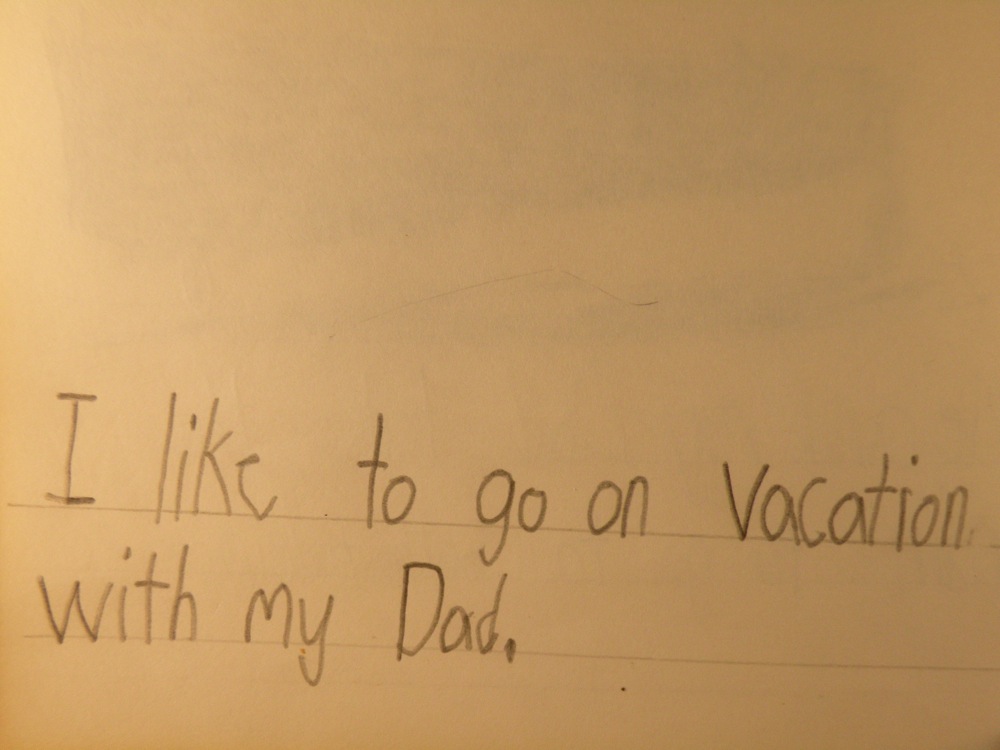 I like to go on vacation
with my Dad.